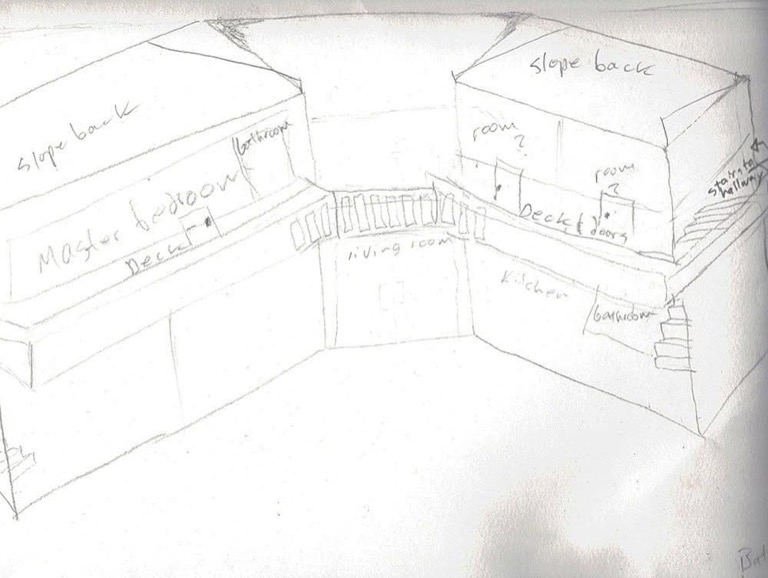 slope back
slope back
bathroom
Master bedroom
Deck
room
?
room
?
Deck & doors
stairs to
hallway
living room
Kitchen
bathroom